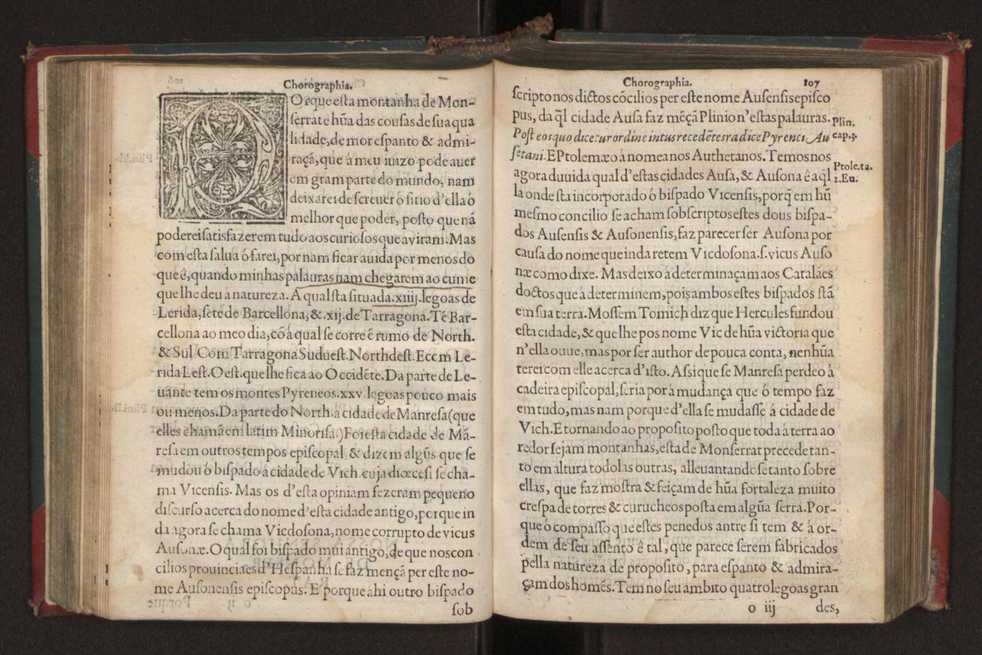 Chorographia.
Orque esta montanha de Mon-
serrate hũa das cousas de sua qua
lidade, de mor espanto & admi-
raçã, que à meu iuizo pode auer
em gram parte do mundo, nam
deixarei descreuer ó sitio d'ella ó
melhor que poder, posto que nã
poderei satisfazer em tudo aos curiosos que a viram. Mas
com esta salua ó farei, por nam ficar auida por menos do
que é, quando minhas palauras nam chegarem ao cume
que lhe deu à natureza. A qual sta situada .xiiij. legoas de
Lerida, sete de Barcellona, & .xij. de Tarragona. Tẽ Bar-
cellona ao meo dia, cõ á qual se corre é rumo de North.
& Sul Com Tarragona Suduest. Northdest. E cem Le-
rida Lest. Oest. que lhe fica ao Occidẽte. Da parte de Le-
uante tem os montes Pyreneos .xxv. legoas pouco mais
ou menos. Da parte do North. à cidade de Manresa (que
elles chamã em latim Minorisa.) Foi esta cidade de Mã-
resa em outros tempos episcopal, & dizem algũs que se
mudou ó bispado à cidade de Vich cuja diœcesi se cha-
ma Vicensis. Mas os d'esta opiniam fezeram pequeno
discurso acerca do nome d'esta cidade antigo, porque in
da agora se chama Vicdosona, nome corrupto de vicus
Ausonæ. O qual foi bispado mui antigo, de que nos con
cilios prouinciaes d'Hespanha se faz mençã per este no-
me Ausonensis episcopus. E porque ahi outro bispado
sob
Chorographia. 107
scripto nos dictos cõcilios per este nome Ausensis episco
pus, da q̃l cidade Ausa faz mẽçã Plinio n'estas palauras.
Plin.
cap.3.
Post eos quo dicetur ordine intus recedẽte radice Pyrenei, Au
setani. E Ptolemæo à nomea nos Authetanos. Temos nos
Ptole.ta.
2.Eu.
agora duuida qual d'estas cidades Ausa, & Ausona é aq̃l
la onde sta incorporado ó bispado Vicensis, porq̃ em hũ
mesmo concilio se acham sobscriptos estes dous bispa-
dos Ausensis & Ausonensis, faz parecer ser Ausona por
causa do nome que inda retem Vicdosona .s. vicus Auso
næ como dixe. Mas deixo á determinaçam aos Catalães
doctos que à determinem, pois ambos estes bispados stã
em sua terra. Mossem Tomich diz que Hercules fundou
esta cidade, & que lhe pos nome Vic de hũa victoria que
n'ella ouue, mas por ser author de pouca conta, nenhũa
terei com elle acerca d'isto. Assi que se Manresa perdeo à
cadeira episcopal, seria por à mudança que ó tempo faz
em tudo, mas nam porque d'ella se mudasse á cidade de
Vich. E tornando ao proposito posto que toda à terra ao
redor sejam montanhas, esta de Monserrat precede tan-
to em altura todolas outras, alleuantandose tanto sobre
ellas, que faz mostra & feiçam de hũa fortaleza muito
crespa de torres & curucheos posta em algũa serra. Por-
que ó compasso que estes penedos antre si tem & à or-
dem de seu assento é tal, que parece serem fabricados
pella natureza de proposito, para espanto & admira-
çam dos homẽs. Tem no seu ambito quatro legoas gran
o iij des,